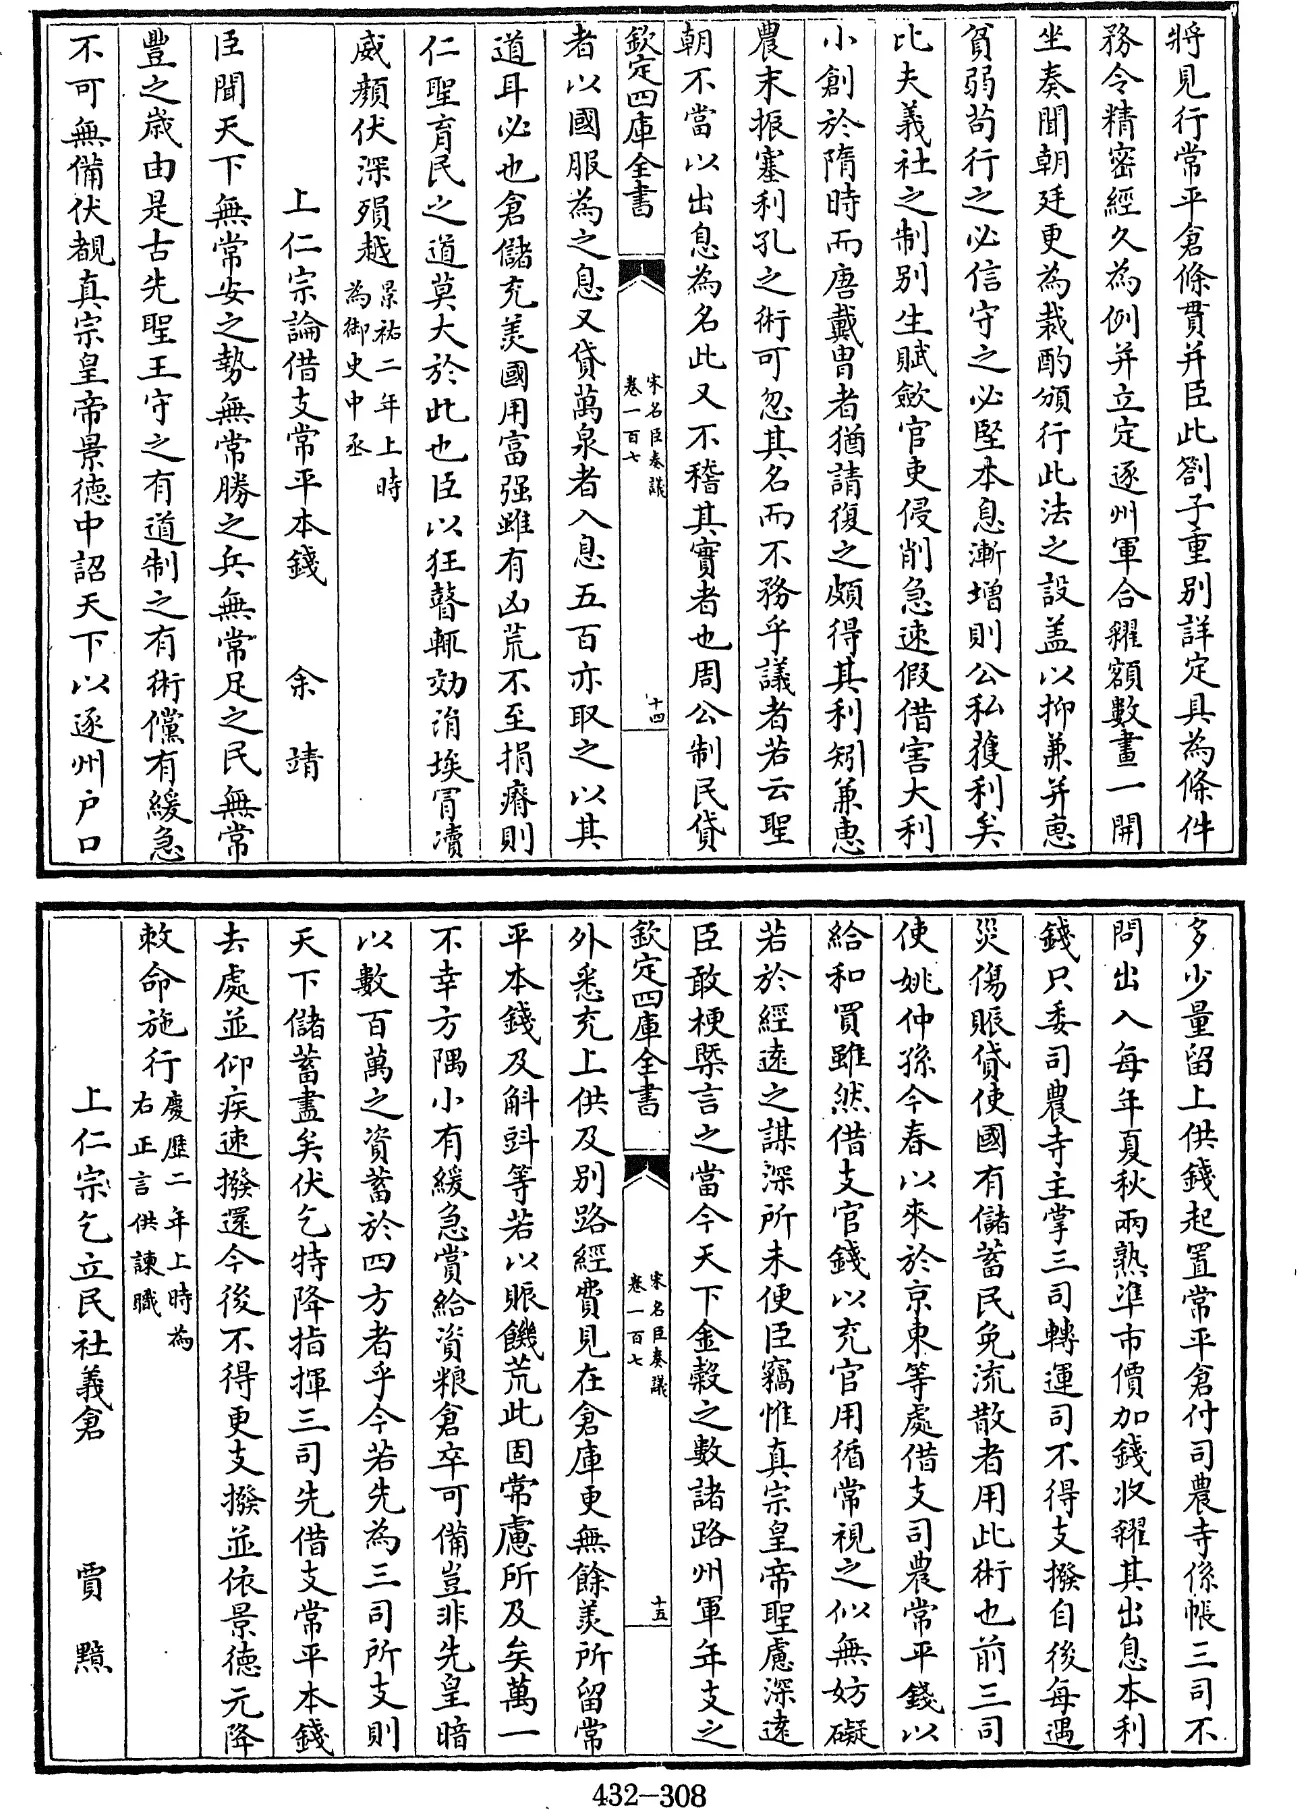 將見行常平倉條貫并臣此劄子重别詳定具為條件
務令精密經久為例并立定逐州軍合糴額數畫一開
坐奏聞朝廷更為裁酌頒行此法之設盖以抑兼并惠
貧弱苟行之必信守之必堅本息漸增則公私獲利矣
比夫義社之制别生賦歛官吏侵削急速假借害大利
小創於隋時而唐戴胄者猶請復之頗得其利矧兼惠
農末振塞利孔之術可忽其名而不務乎議者若云聖
朝不當以出息為名此又不稽其實者也周公制民貸
欽定四庫全書
宋名臣奏議
卷一百七
十四
者以國服為之息又貸萬泉者入息五百亦取之以其
道耳必也倉儲充羙國用富强雖有凶荒不至捐瘠則
仁聖育民之道莫大於此也臣以狂瞽輒効涓埃冐瀆
威顔伏深殞越
景祐二年上時
為御史中丞
上仁宗論借支常平本錢 余靖
臣聞天下無常安之勢無常勝之兵無常足之民無常
豐之歳由是古先聖王守之有道制之有術儻有緩急
不可無備伏覩真宗皇帝景德中詔天下以逐州户口
多少量留上供錢起置常平倉付司農寺係帳三司不
問出入每年夏秋兩熟準市價加錢收糴其出息本利
錢只委司農寺主掌三司轉運司不得支撥自後每遇
災傷賑貸使國有儲蓄民免流散者用此術也前三司
使姚仲孫今春以來於京東等處借支司農常平錢以
給和買雖然借支官錢以充官用循常視之似無妨礙
若於經逺之謀深所未便臣竊惟真宗皇帝聖慮深逺
臣敢梗槩言之當今天下金穀之數諸路州軍年支之
欽定四庫全書
宋名臣奏議
卷一百七
十五
外悉充上供及别路經費見在倉庫更無餘羙所留常
平本錢及斛㪷等若以賑饑荒此固常慮所及矣萬一
不幸方隅小有緩急賞給資粮倉卒可備豈非先皇暗
以數百萬之資蓄於四方者乎今若先為三司所支則
天下儲蓄盡矣伏乞特降指揮三司先借支常平本錢
去處並仰疾速撥還今後不得更支撥並依景德元降
敕命施行
慶歴二年上時為
右正言供諫職
上仁宗乞立民社義倉 賈黯
432-308